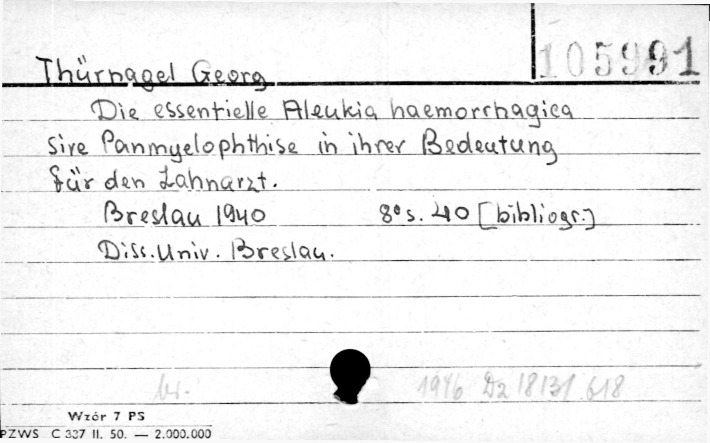 105991
Thürnagel Georg
Die essentielle Aleukia haemorrhagica
sive Panmyelophthise in ihrer Bedeutung
für den Zahnarzt.
Breslau 1940 8° s. 40 [bibliogr.]
Diss. Univ. Breslau.
1946 Dz 1813/ 618
Wzór 7 PS
PZWS C 337 II. 50. — 2.000.000